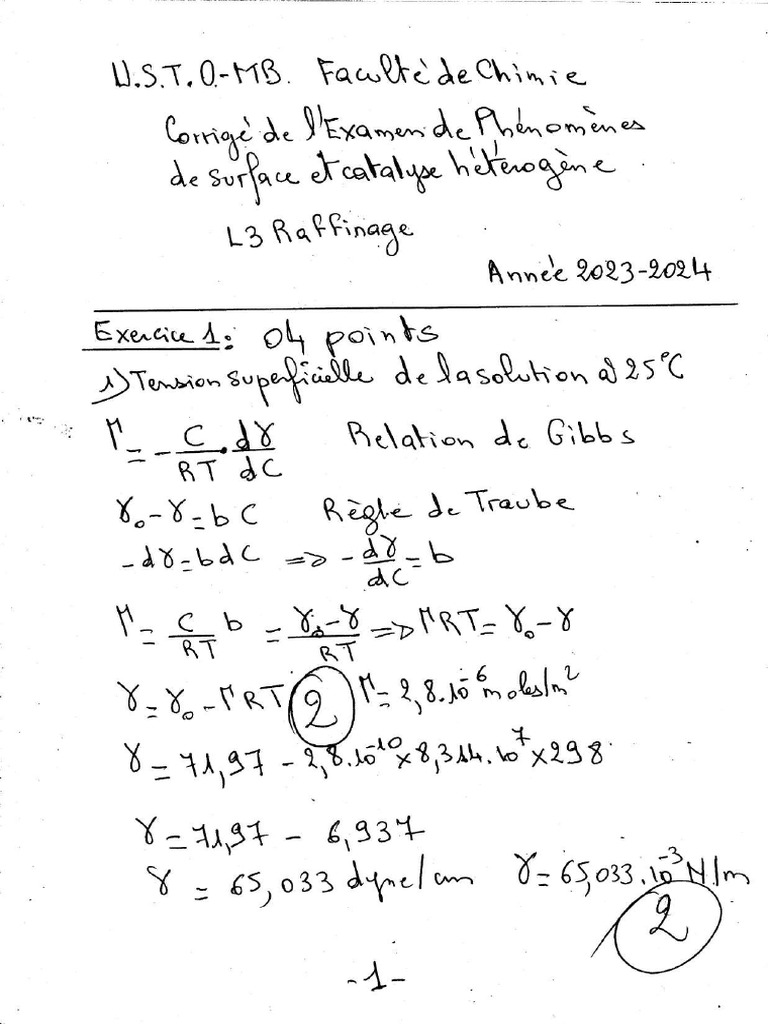 U.S.T.O.-MB. Faculté de Chimie
Corrigé de l'Examen de Phénomènes
de surface et catalyse hétérogène.
L3 Raffinage
Année 2023-2024
Exercice 1: 04 points
1) Tension superficielle de la solution à 25°C
Γ = - C/RT . dγ/dC Relation de Gibbs
γ₀ - γ = bC Règle de Traube
-dγ = bdC => - dγ/dC = b
Γ = C/RT b = γ₀-γ/RT => ΓRT = γ₀ - γ
γ = γ₀ - ΓRT 2 Γ = 2,8.10⁻⁶ moles/m²
γ = 71,97 - 2,8.10⁻¹⁰ x 8,314.10⁷ x 298
γ = 71,97 - 6,937
γ = 65,033 dyne/cm γ = 65,033.10⁻³ N/m
2
-1-